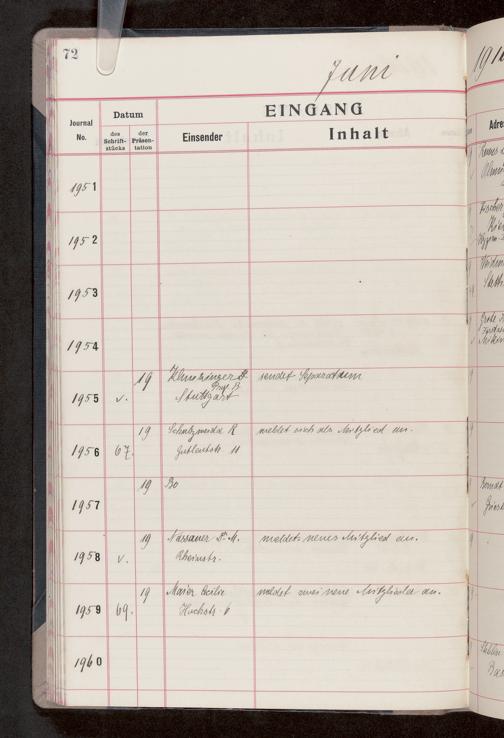 72
Juni
EINGANG
Datum
Journal No.
des Schrift-stücks
der Präsen-tation
Einsender
Inhalt
1951
1952
1953
1954
19 Klunzinger Dr. sendet Separatum
Prof. B.
1955 v. Stuttgart
19 R meldet sich als Mitglied an.
1956 67. Gutleutstr. 11
19 Bo
1957
19 Nassauer Dr. M. meldet neues Mitglied an.
1958 v. Rheinstr.
19 Maier Cecilie meldet zwei neue Mitglieder an.
1959 69. Hochstr. 6
1960